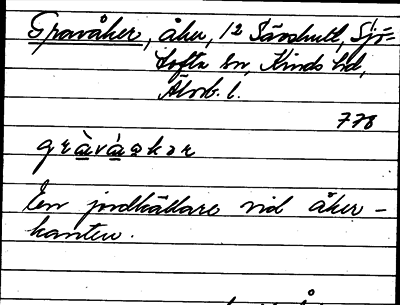 Gravåker, åker, 12 Sävshult, Sjö=
tofta sn, Kinds hd,
Älvsb. l.
778
gràvàakər
En jordkällare vid åker-
kanten.